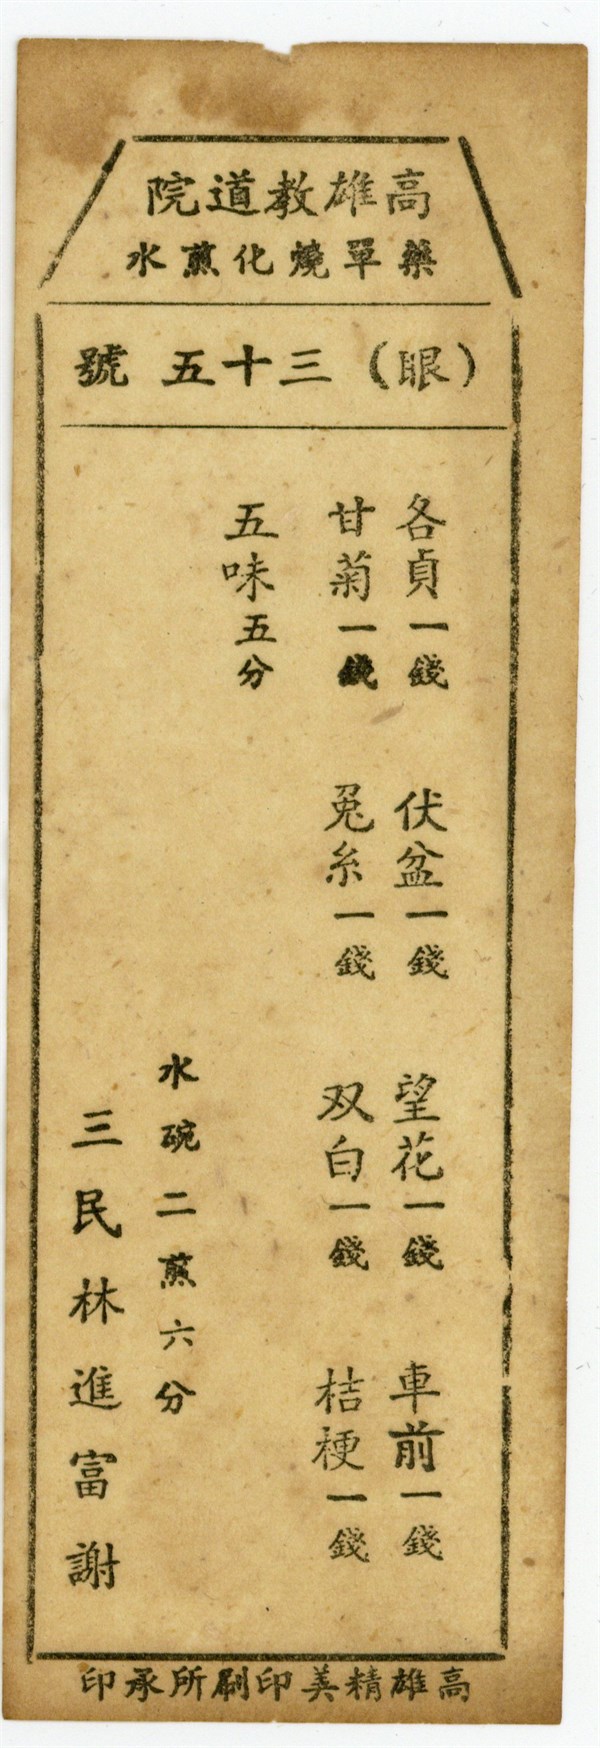 高雄教道院
藥單燒化煎水
(眼)三十五號
各貞一錢 伏盆一錢 望花一錢 車前一錢
甘菊一錢 兎糸一錢 双白一錢 桔梗一錢
五味五分
水碗二煎六分
三民林進富謝
高雄精美印刷所承印